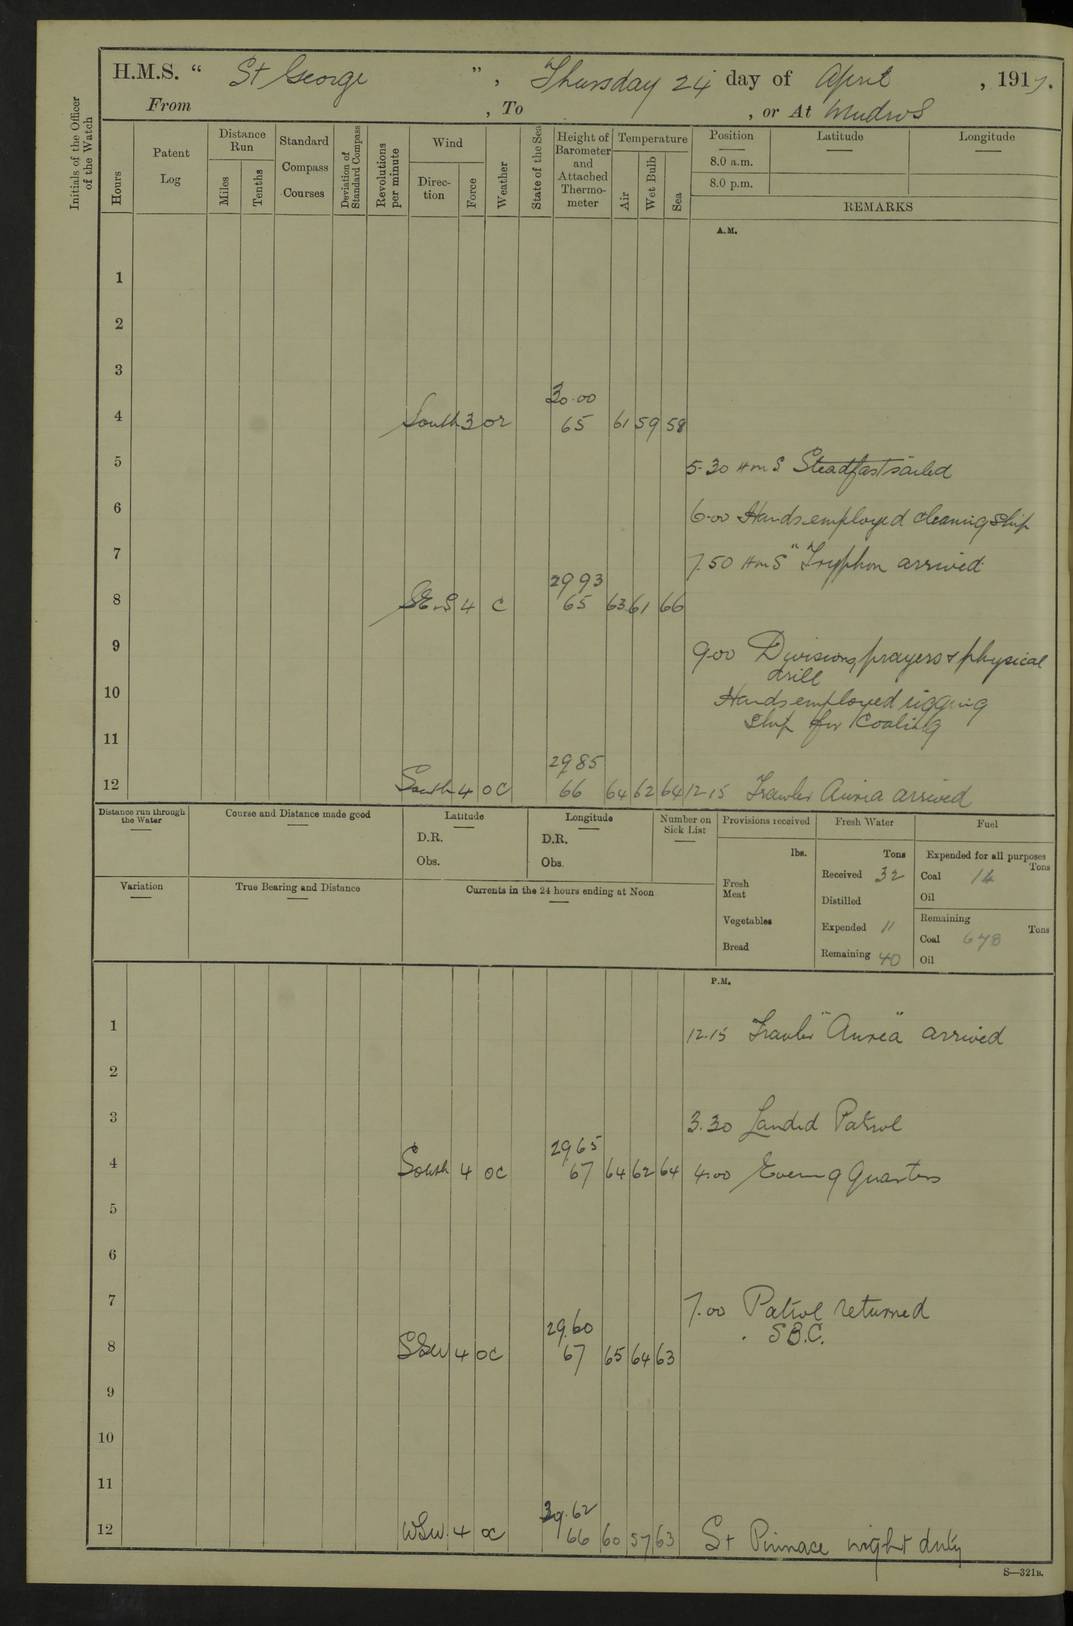 H.M.S. “ St George ” , Thursday 24 day of April , 1917.
From , To , or At Mudros
Initials of the Officer of the Watch
Hours
Patent Log
Distance Run
Miles
Tenths
Standard Compass Courses
Deviation of Standard Compass
Revolutions per minute
Wind
Direction
Force
Weather
State of the Sea
Height of Barometer and Attached Thermometer
Temperature
Air
Wet Bulb
Sea
Position Latitude Longitude
8.0 a.m.
8.0 p.m.
REMARKS
A.M.
1
2
3
30.00
4 South 3 or 65 61 59 58
5 5.30 HMS Steadfast sailed
6 6.00 Hands employed cleaning ship
7 7.50 HMS "Tryphon arrived
29 93
8 4 c 65 63 61 66
9 9.00 Divisions prayers & physical
drill
10 Hands employed rigging
ship for coaling
11
29.85
12 South 4 oc 66 64 62 64 12.15 Trawler Aurea arrived
Distance run through the Water
Course and Distance made good
Latitude
D.R.
Obs.
Longitude
D.R.
Obs.
Number on Sick List
Provisions received
lbs.
Fresh Meat
Vegetables
Bread
Fresh Water
Tons
Received 32
Distilled
Expended 11
Remaining 40
Fuel
Expended for all purposes
Tons
Coal 14
Oil
Remaining
Tons
Coal 678
Oil
Variation
True Bearing and Distance
Currents in the 24 hours ending at Noon
P.M.
1 12.15 Trawler "Aurea" arrived
2
3 3.30 Landed Patrol
29 65
4 South 4 oc 67 64 62 64 4.00 Evening Quarters
5
6
7 7.00 Patrol returned
29.60 . S.B.C.
8 SSW 4 oc 67 65 64 63
9
10
11
29.62
12 WSW. 4 oc 66 60 57 63 St Pinnace night duty
S—321B.